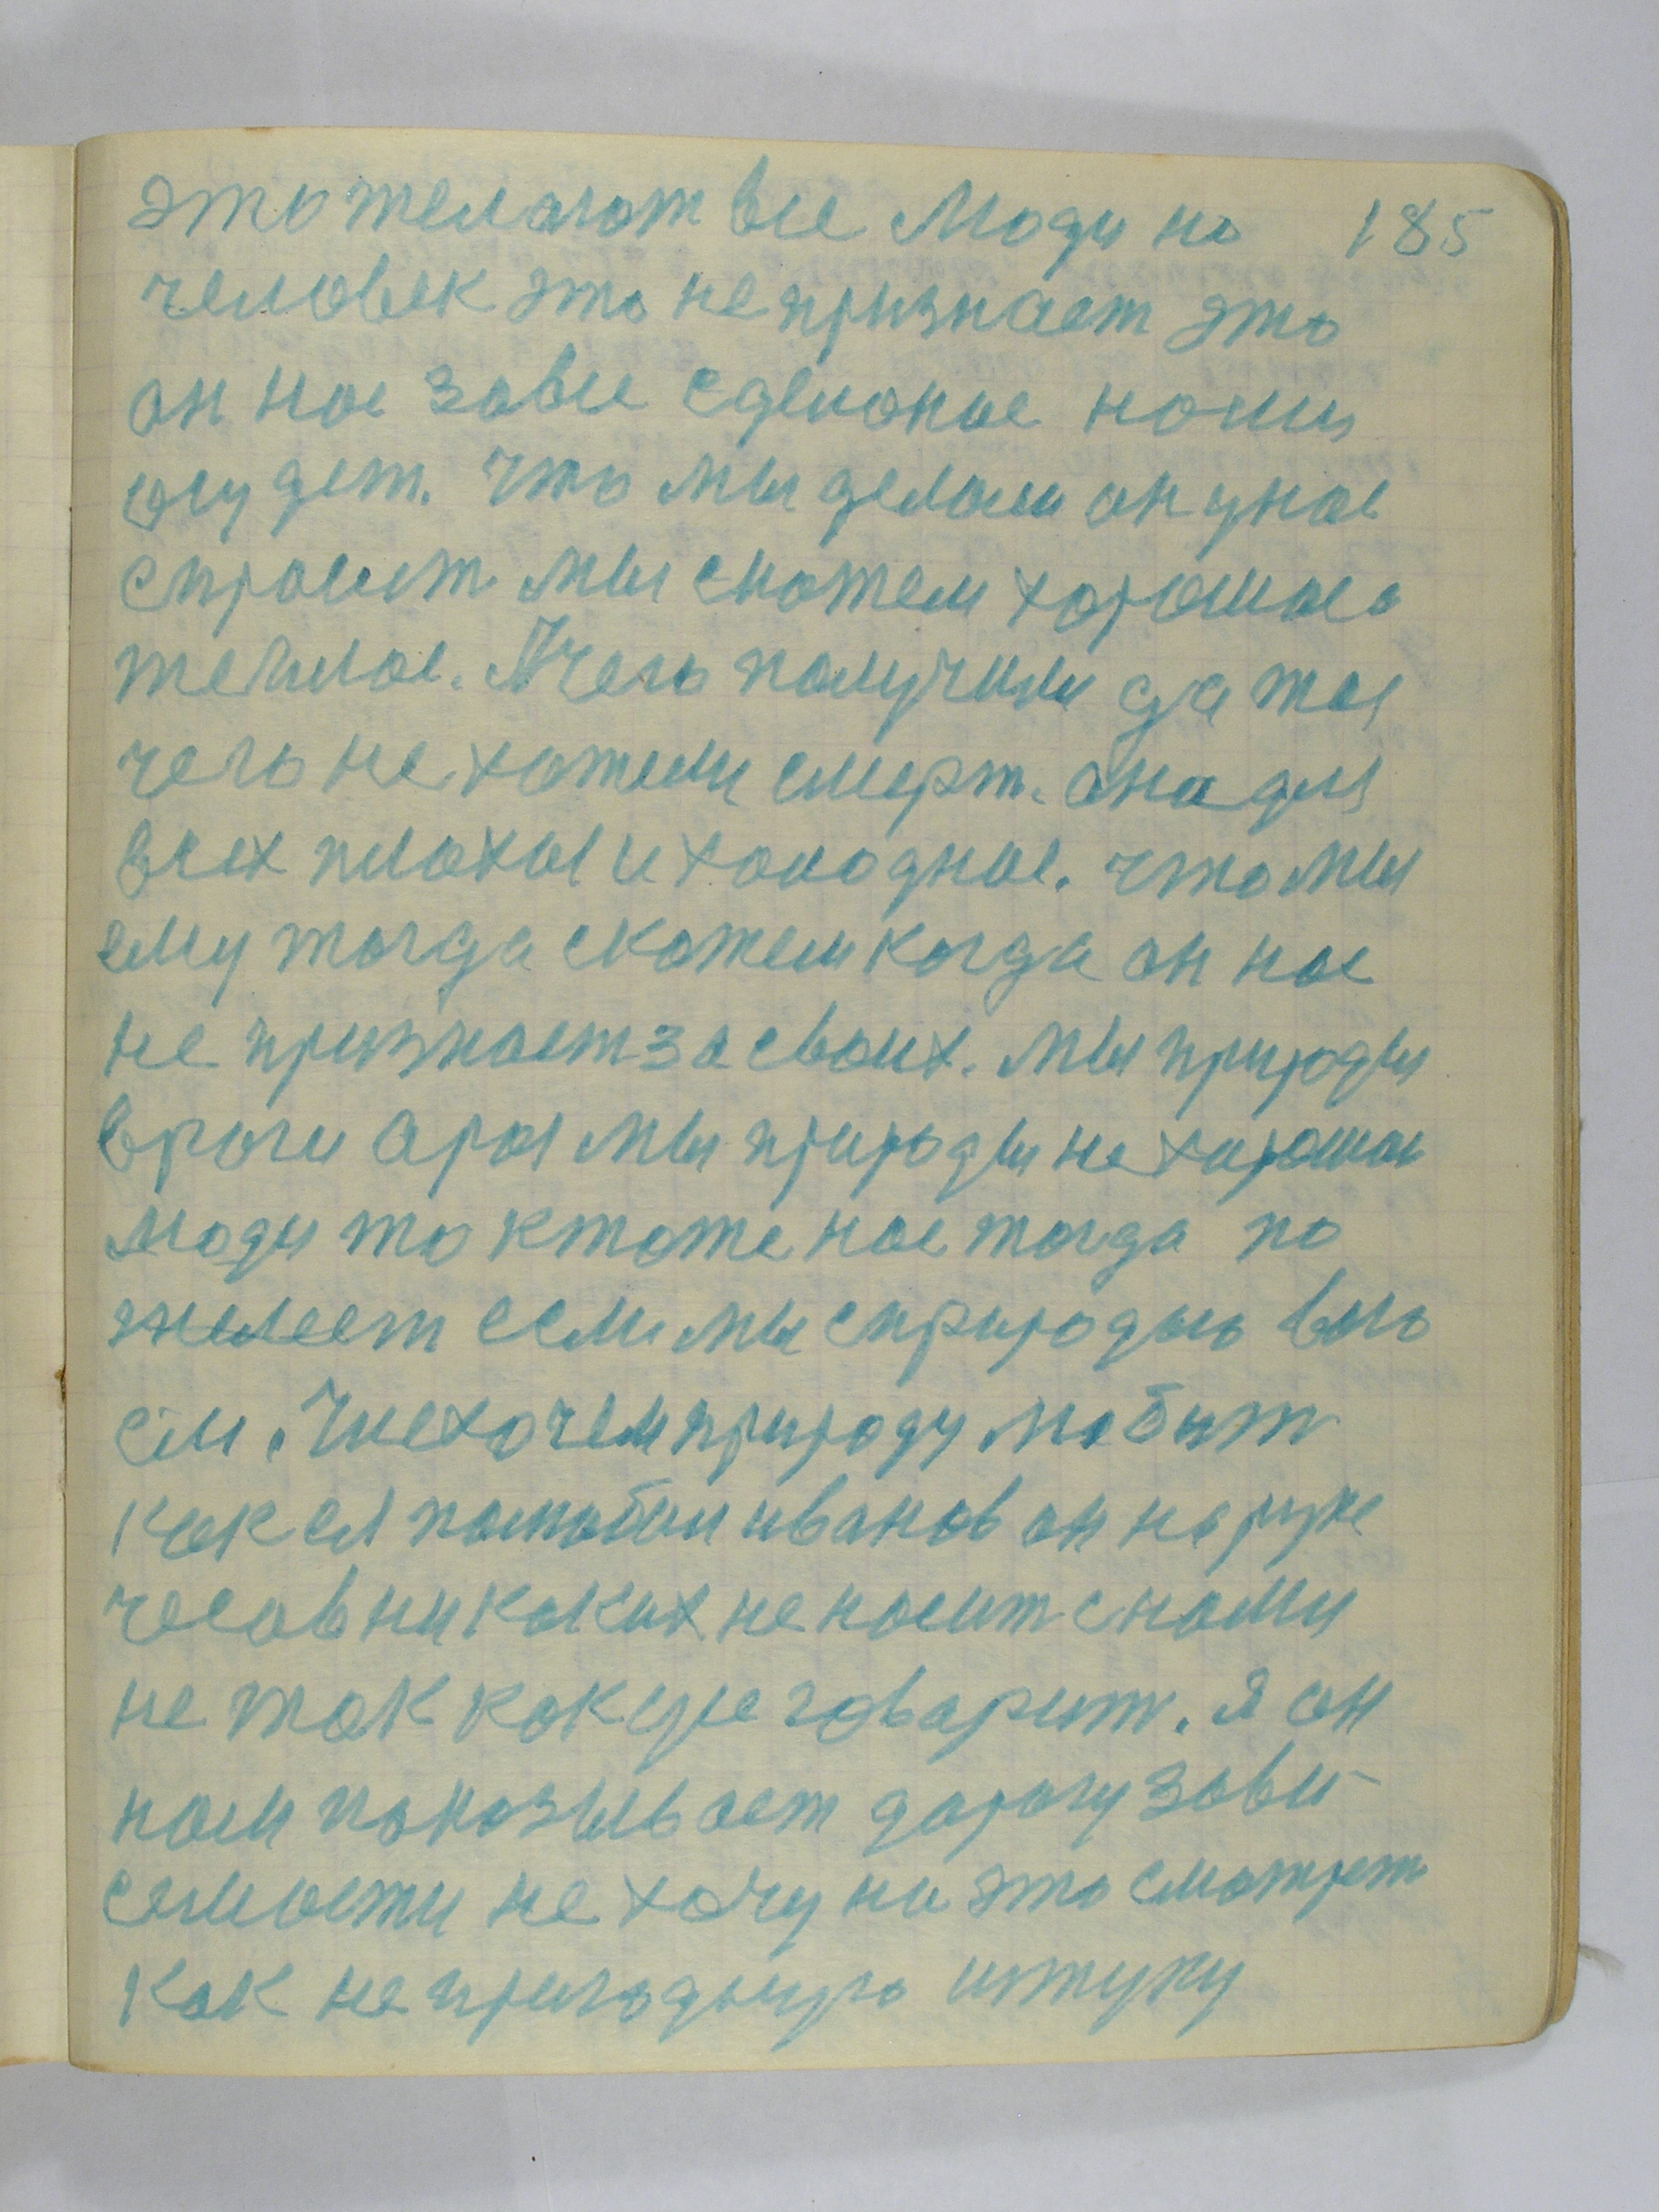 это желают все люди но 185
человек это не признает это
он нас завсе сделоное номи
осудет. что мы делаем он у нас
спросит мы скажем хорошоео
теплое. Ачего получили да тоя
чего не хотели смерт. она для
всех плохоя и холодное. что мы
ему тогда скажем когда он нас
не признает за своих. мы природы
враги а роя мы природы не хорошои
люди то ктоже нас тогда по
жалеет если мы с природыю вою
ем. И не хочем природу любит
как ея полюбил иванов он на руке
часов ни каких не носит с нами
не так как уже говарит. я он
нам показывает дорогу зави-
симости не хочу на это смотрет
как не пригодную штуку